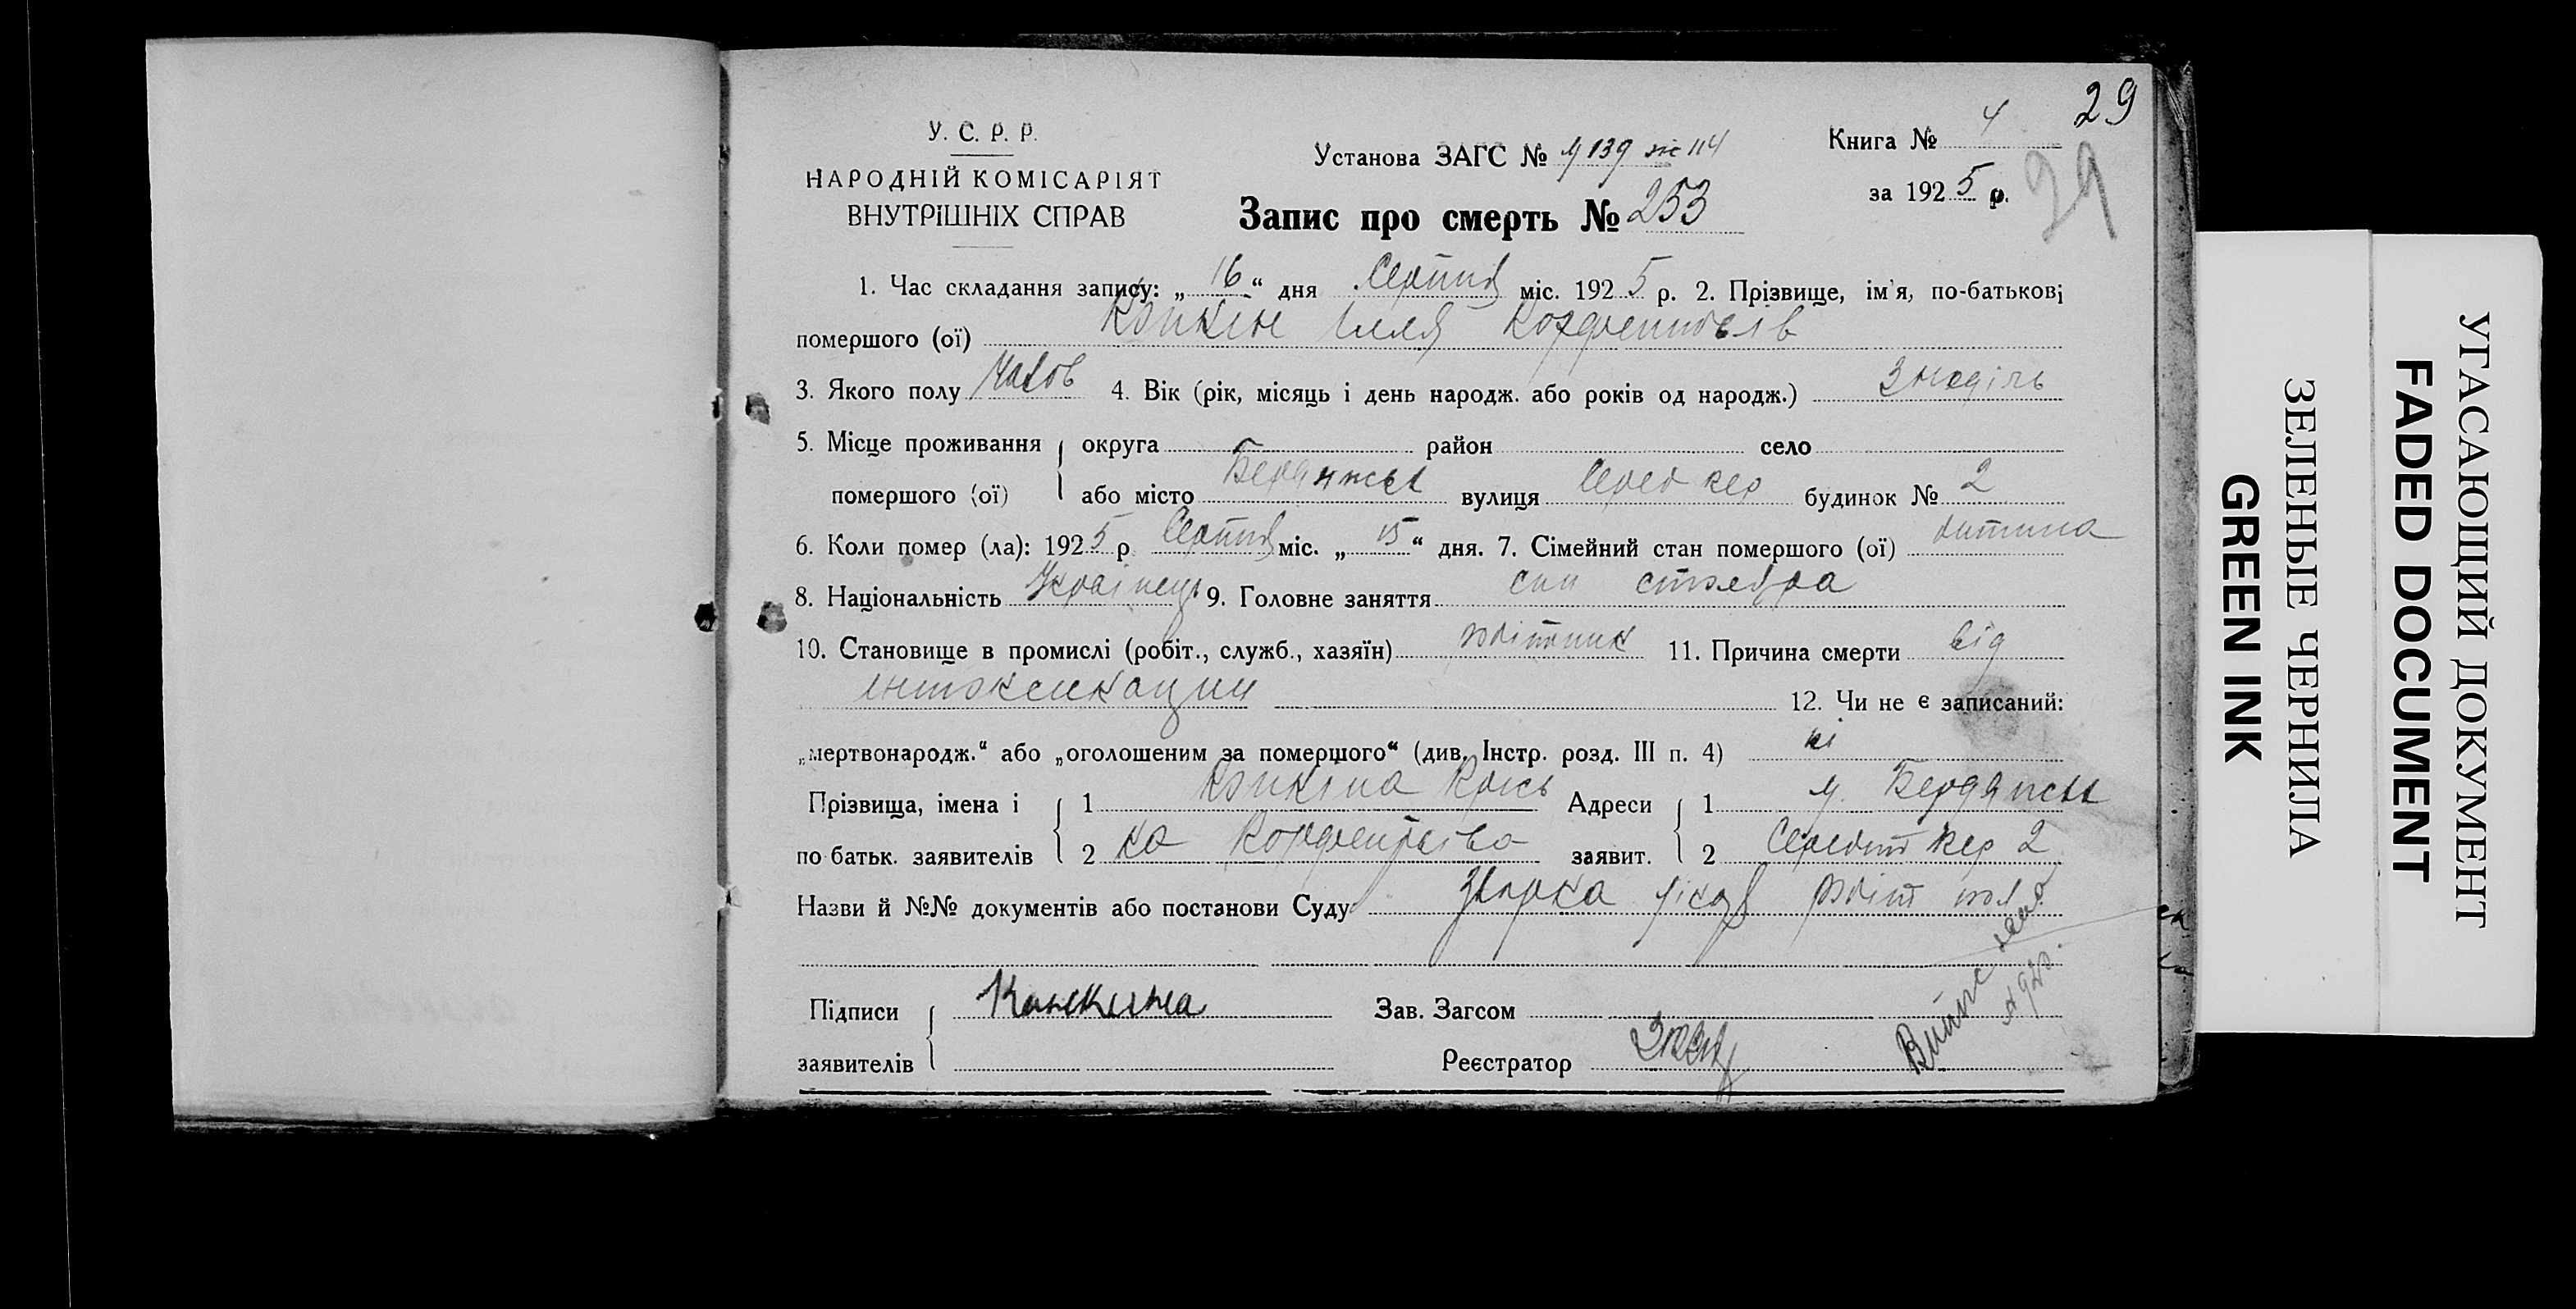 29
У. С. Р. Р.
НАРОДНІЙ КОМІСАРІЯТ
ВНУТРІШНІХ СПРАВ
Установа ЗАГС № 139 114
Запис про смерть № 253
Книга № 4
за 1925 р.
29
1. Час складання запису: „16“ дня Серпня міс. 1925 р. 2. Прізвище, ім'я, по-батькові
помершого (ої) Ілля
3. Якого полу 4. Вік (рік, місяць і день народж. або років од народж.) 3 неділь
5. Місце проживання округа район село
помершого (ої) або місто Бердянськ вулиця Серед кер будинок № 2
6. Коли помер (ла): 1925 р Серпня міс. „15“ дня. 7. Сімейний стан помершого (ої) дитина
8. Національність Українець 9. Головне заняття син столяра
10. Становище в промислі (робіт., служб., хазяїн) робітник 11. Причина смерти від
интоксикации 12. Чи не є записаний:
„мертвонародж.“ або „оголошеним за помершого“ (див. Інстр. розд. III п. 4) ні
Прізвища, імена і 1 Адреси 1 м. Бердянськ
по батьк. заявителів 2 заявит. 2 кер 2
Назви й №№ документів або постанови Суду
Підписи Зав. Загсом
заявителів Реєстратор
УГАСАЮЩИЙ ДОКУМЕНТ
FADED DOCUMENT
ЗЕЛЕНЫЕ ЧЕРНИЛА
GREEN INK